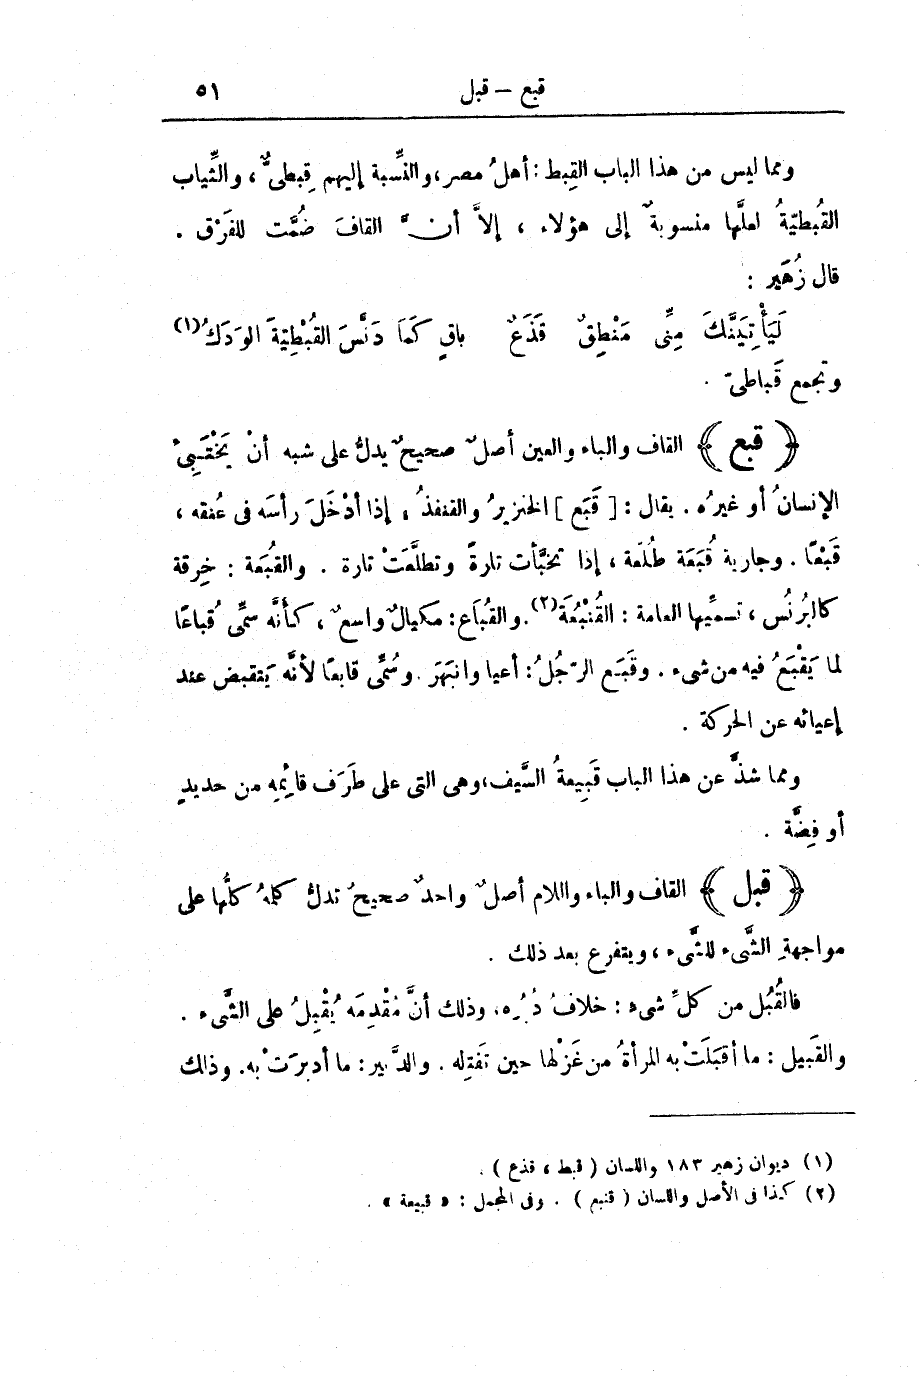 قبع — قبل ٥١
ومما ليس من هذا الباب القِبط : أهلُ مصر، والنِّسبة إليهم قِبطىٌّ ، والثِّياب
القُبطيّةُ لعلَّها منسوبةٌ إلى هؤلاء ، إلاَّ أنَّ القافَ ضُمَّت للفَرْق .
قال زُهَير :
لَيَأْتِيَنَّكَ مِنِّى مَنْطِقٌ قَذَعٌ باقٍ كَمَا دَنَّسَ القُبْطِيّةَ الوَدَكُ(١)
وتجمع قَباطىّ .
﴿ قبع ﴾ القاف والباء والعين أصلٌ صحيحٌ يدلُّ على شبه أنْ يَخْتَبِئَ
الإنسانُ أو غيرُه . يقال : [ قَبَع ] الخنزيرُ والقنفذُ ، إذا أدْخَلَ رأسَه فى عُنقه ،
قَبْعًا . وجارية قُبَعَة طُلَعَة ، إذا تخبَّأت تارةً وتطلَّعَتْ تارة . والقُبَعة : خِرقة
كالبُرنُس ، تسمِّيها العامة : القُنْبُعَة(٢) . والقُبَاع : مكيالٌ واسعٌ ، كأنَّه سمِّى قُباعًا
لما يَقْبَعُ فيه من شىء . وقَبَع الرّجُلُ : أعيا وانبَهَرَ . وسُمِّى قابعًا لأنَّه يَتقبض عند
إعيائه عن الحركة .
ومما شذَّ عن هذا الباب قَبِيعةُ السَّيف، وهى التى على طَرَف قائِمِه من حديدٍ
أو فِضَّة .
﴿ قبل ﴾ القاف والباء واللام أصلٌ واحدٌ صحيحٌ تدلُّ كلمهُ كلُّها على
مواجهةِ الشَّىء للشَّىء ، ويتفرع بعد ذلك .
فالقُبُل من كلِّ شىء : خلافُ دُبُره، وذلك أنَّ مُقْدِمَه يُقْبِلُ على الشَّىء .
والقَبِيل : ما أقبَلَتْ به المرأةُ من غَزْلها حين تَفتِله . والدَّبير : ما أدبرَتْ به. وذلك
(١) ديوان زهير ١٨٣ واللسان ( قبط ، قذع ) .
(٢) كذا فى الأصل واللسان ( قنبع ) . وفى المجمل : « قبيعة » .